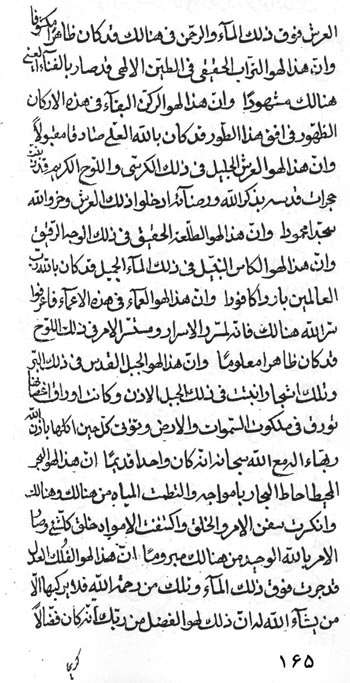 العرش فوق ذلك المآء والرحمن في هنالك قد كان ظاهراً مكشوفا
وانّ هذا لهو التراب الحقيقي في الطين الالهي قد صار بالفنآء العلي
هنالك مشهودًا وانّ هذا لهو الركن البقآء في هذه الاركان
الظهور في افق هذا الطور قد كان بالله العلي صادقا مقبولاً
وانّ هذا لهو العرش الجليل في ذلك الكرسي واللوح الكريم قد
حجرات قدسه بذكر الله ورضآئه ادخلوا ذلك العرش وخروا لله
سجّدا محمودا وانّ هذا لهو الطلعة الحقيق في ذلك الوجه الرقيق
وانّ هذا لهو الكاس النبيل في ذلك المآء الجيل قد كان بالله ربّ
العالمين بارزا كافورا وانّ هذا لهو العمآء في هذه الاعمآء فاعرفوا
سرّ الله هنالك فانه لسرّ الاسرار ومستسرّ الامر في ذلك اللوح
قد كان ظاهرا معلوما وانّ هذا لهو الجبل القدس في ذلك البرّ
وتلك اشجار انبتت في ذلك الجبل الاذن وكانت اوراق اغصانها
تورق في ملكوت السموات والارض وتؤتى كلّ حين اكلها باذن الله
رضآء الرمع الله سبحانه انّه كان واحدا قديما انّ هذا لهو البحر
المحيط احاط البحار بامواجه والنطمت المياه من هنالك وهنالك
وانكرت سفن الامر والخلق واكشفت الامواد خلق كلّشئ وصار
الامر بالله الوحيد من هنالك مبروما انّ هذا لهو الفلك العدل
قد جرت فوق ذلك المآء وتلك من رحمة الله قد يركبها الّا
من يشآء الله له انّ ذلك لهو الفضل من ربّك انّه كان فضّالاً
۱۶۵ كريما